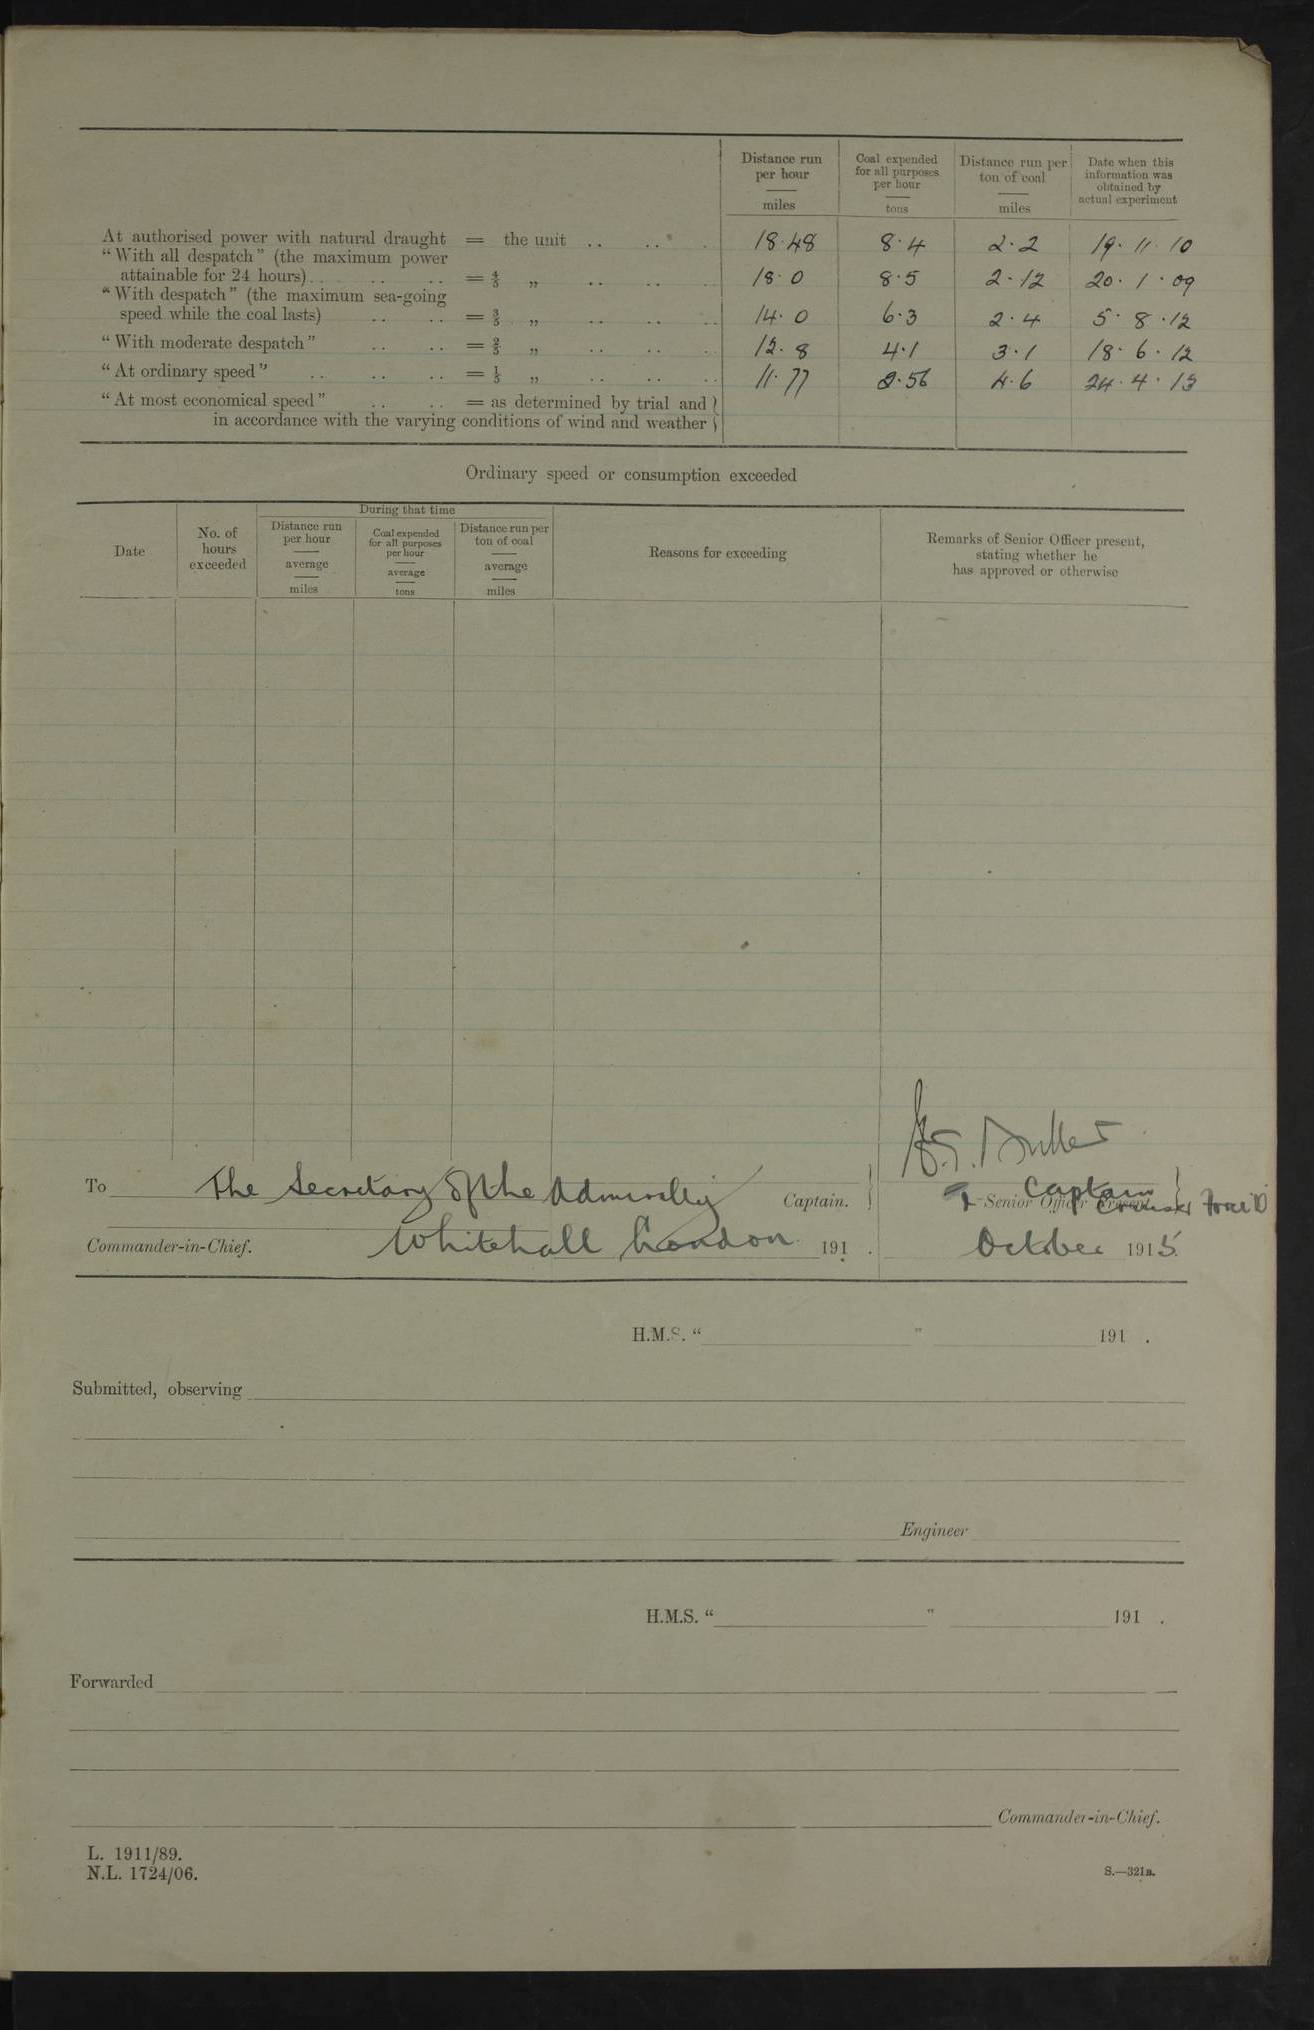 Distance run per hour — miles
Coal expended for all purposes per hour — tons
Distance run per ton of coal — miles
Date when this information was obtained by actual experiment
At authorised power with natural draught = the unit .. .. . 18·48 8·4 2·2 19·11·10
“With all despatch” (the maximum power
attainable for 24 hours) .. .. .. = 4/5 „ .. .. .. 18·0 8·5 2·12 20·1·09
“With despatch” (the maximum sea-going
speed while the coal lasts) .. .. = 3/5 „ .. .. .. 14·0 6·3 2·4 5·8·12
“With moderate despatch” .. .. = 2/5 „ .. .. .. 12·8 4·1 3·1 18·6·12
“At ordinary speed” .. .. .. = 1/5 „ .. .. .. 11·77 2·56 4·6 24·4·13
“At most economical speed” .. .. = as determined by trial and }
in accordance with the varying conditions of wind and weather }
Ordinary speed or consumption exceeded
Date
No. of hours exceeded
During that time
Distance run per hour — average — miles
Coal expended for all purposes per hour — average — tons
Distance run per ton of coal — average — miles
Reasons for exceeding
Remarks of Senior Officer present, stating whether he has approved or otherwise
To The Secretary of the Admiralty Captain.
Captain
Senior Officer Present
Cruiser Force D
Commander-in-Chief. Whitehall London 191 .
October 1915
H.M.S. “ ” 191 .
Submitted, observing
Engineer
H.M.S. “ ” 191 .
Forwarded
Commander-in-Chief.
L. 1911/89.
N.L. 1724/06.
S.—321B.